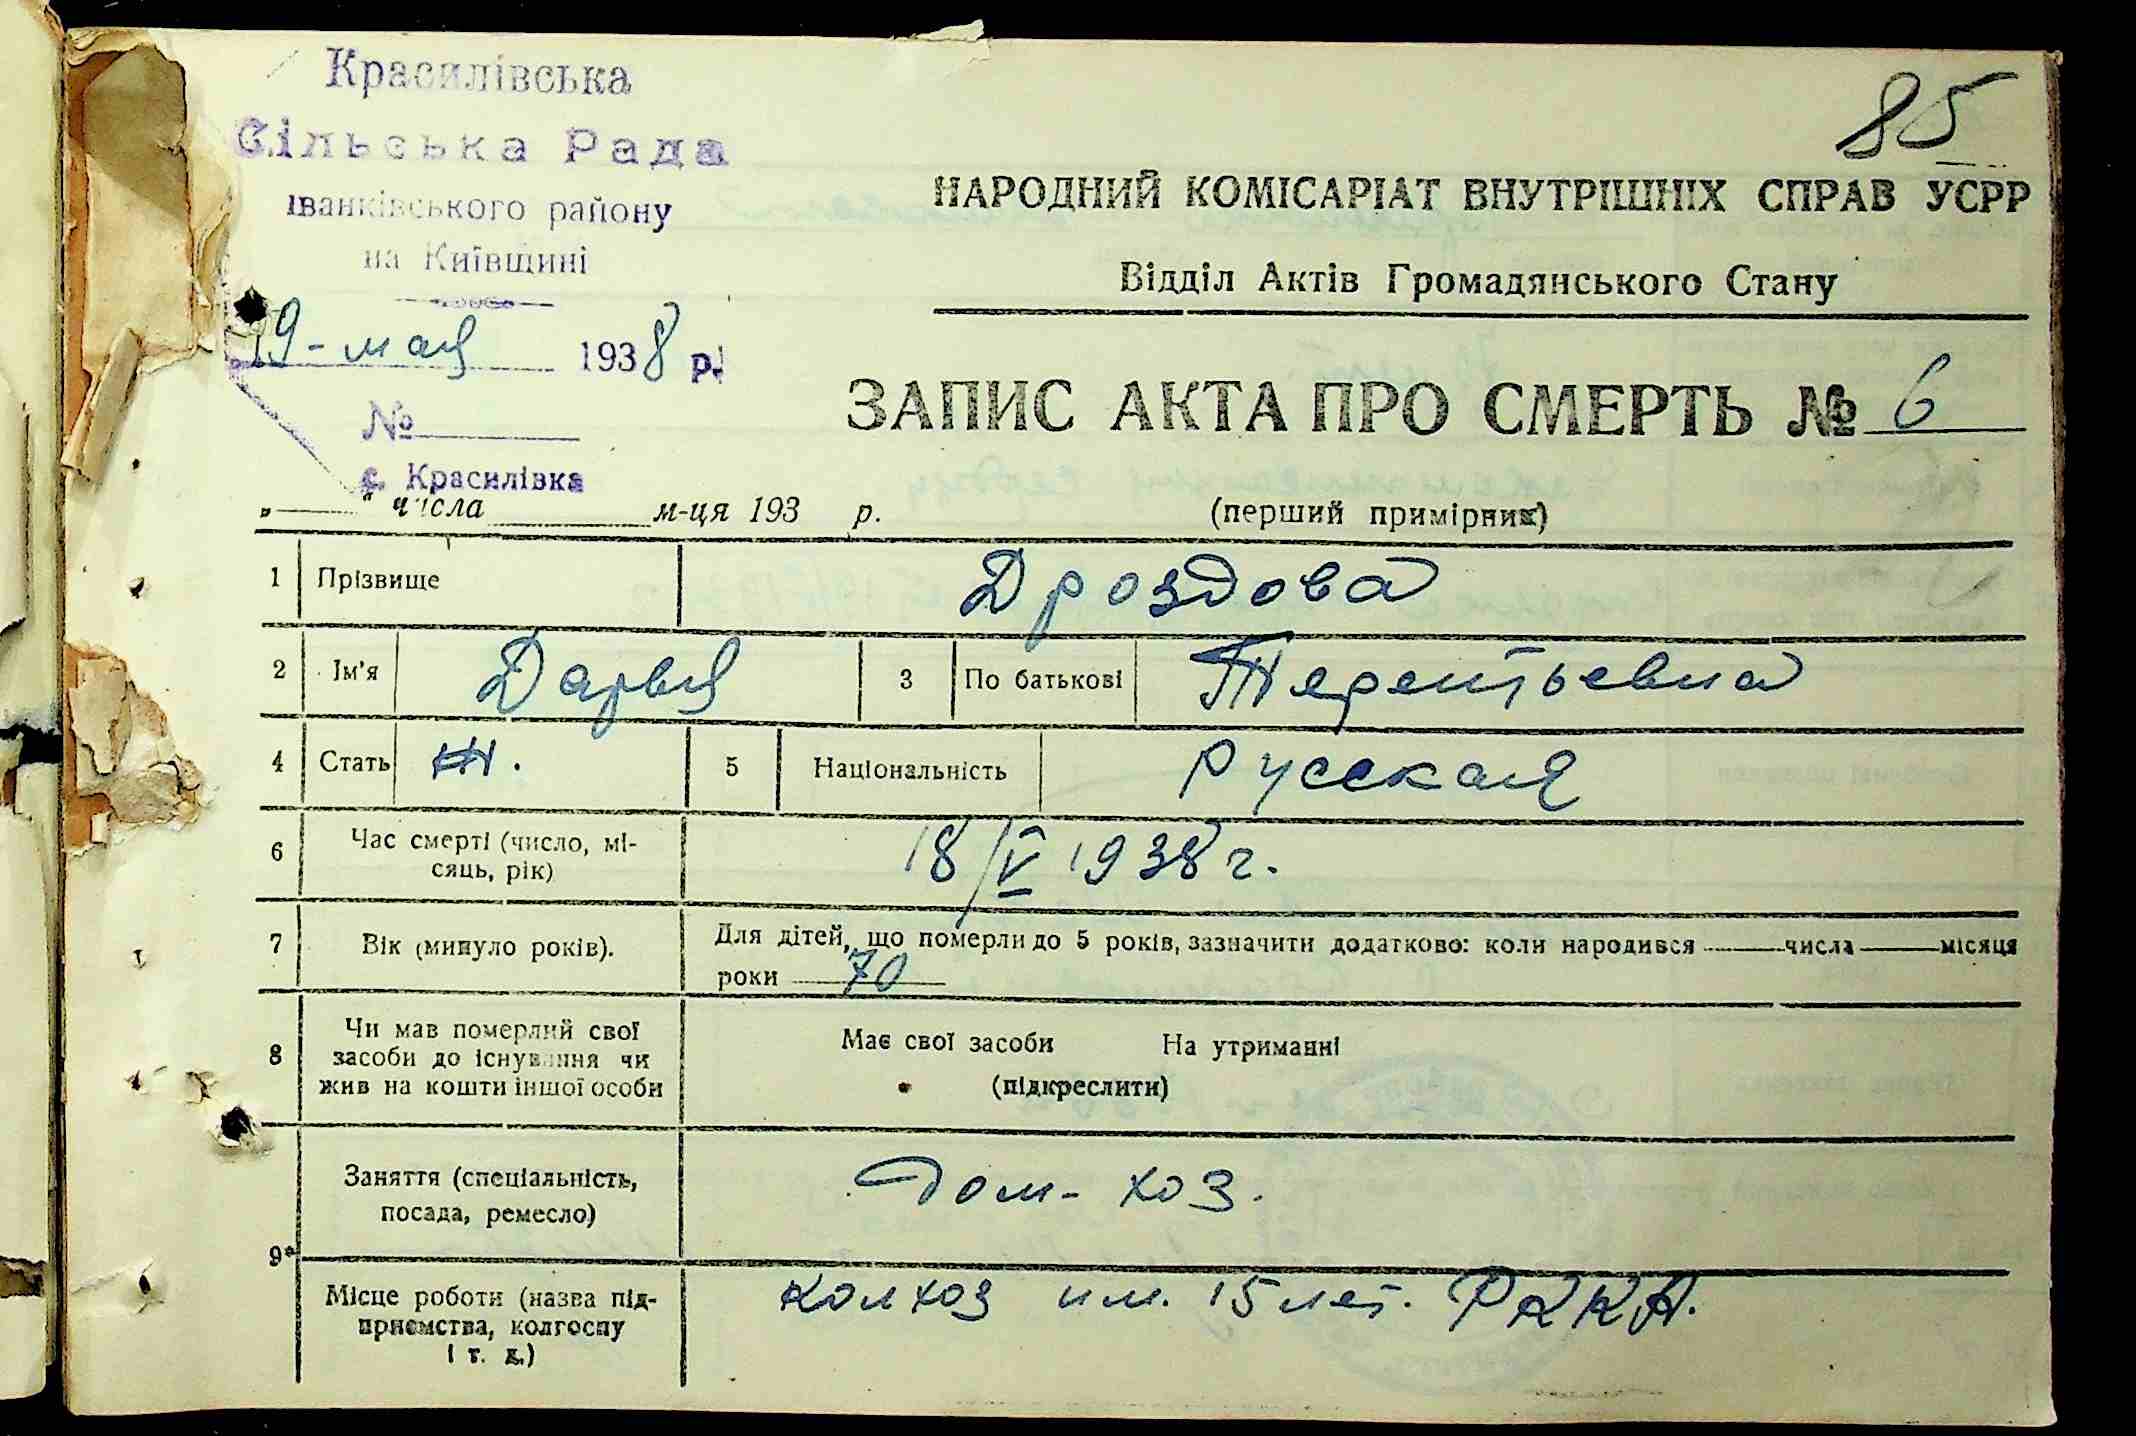 Красилівська
Сільська Рада
Іванківського району
на Київщині
19-мая 1938 р.
№
с. Красилівка
85
НАРОДНИЙ КОМІСАРІАТ ВНУТРІШНІХ СПРАВ УСРР
Відділ Актів Громадянського Стану
ЗАПИС АКТА ПРО СМЕРТЬ № 6
„ " числа м-ця 193 р. (перший примірник)
1 Прізвище Дроздова
2 Ім'я Дарья 3 По батькові Терентьевна
4 Стать Ж. 5 Національність Русская
6 Час смерті (число, мі-
сяць, рік) 18/V 1938 г.
7 Вік (минуло років). Для дітей, що померли до 5 років, зазначити додатково: коли народився числа місяця
роки 70
8 Чи мав померлий свої
засоби до існування чи
жив на кошти іншої особи
Має свої засоби На утриманні
(підкреслити)
9*
Заняття (спеціальність,
посада, ремесло) Дом-хоз.
Місце роботи (назва під-
приємства, колгоспу
і т. д.) колхоз им. 15 лет. РККА.